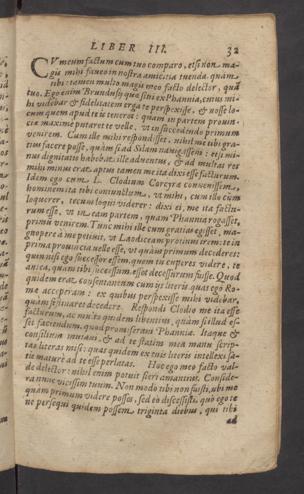 LIBER III. 32
CVm meum factum cum tuo comparo, etsi non ma-
gis mihi faueo in nostra amicitia tuenda quàm
tibi: tamen multo magis meo facto delector, quàm
tuo. Ego enim Brundusij quæsiui ex Phania, cuius mi-
hi videbar & fidelitatem erga te perspexisse, & nosse lo-
cum quem apud te is teneret: quam in partem prouin-
ciæ maximè putaret te velle, vt in succedendo primum
venirem. Cum ille mihi respondisset, nihil me tibi gra-
tius facere posse, quàm si ad Sidam nauigassem: etsi mi-
nus dignitatis habebat ille aduentus, & ad multas res
mihi minus erat aptus tamen me ita dixi esse facturum.
Idem ego cum L. Clodium Corcyræ conuenissem,
hominem ita tibi coniunctum, vt mihi, cum illo cum
loquerer, tecum loqui viderer: dixi ei, me ita factu-
rum esse, vt in eam partem, quam Phania rogasset,
primùm venirem. Tunc mihi ille cum gratias egisset, ma-
gnopere à me petiuit, vt Laodiceam protinus irem: te in
prima prouincia velle esse, vt quàm primum decederes:
quin nisi ego successor essem, quem tu cuperes videre, te
antea, quàm tibi successum esset decessurum fuisse. Quod
quidem erat consentaneum cum ijs literis, quas ego Ro-
mæ acceperam: ex quibus perspexisse mihi videbar,
quàm festinares decedere. Respondi Clodio me ita esse
facturum, ac multo quidem libentius, quàm si illud es-
set faciendum, quod promiseram Phaniæ. Itaque &
consilium mutaui, & ad te statim mea manu scrip-
tas literas misi: quas quidem ex tuis literis intellexi sa-
tis maturè ad te esse perlatas. Hoc ego meo facto val-
de delector: nihil enim potuit fieri amantius. Conside-
ra nunc vicissim tuum. Non modo ibi non fuisti, vbi me
quàm primum videre posses, sed eo discessisti, quò ego te
ne persequi quidem possem triginta diebus, qui tibi
ad